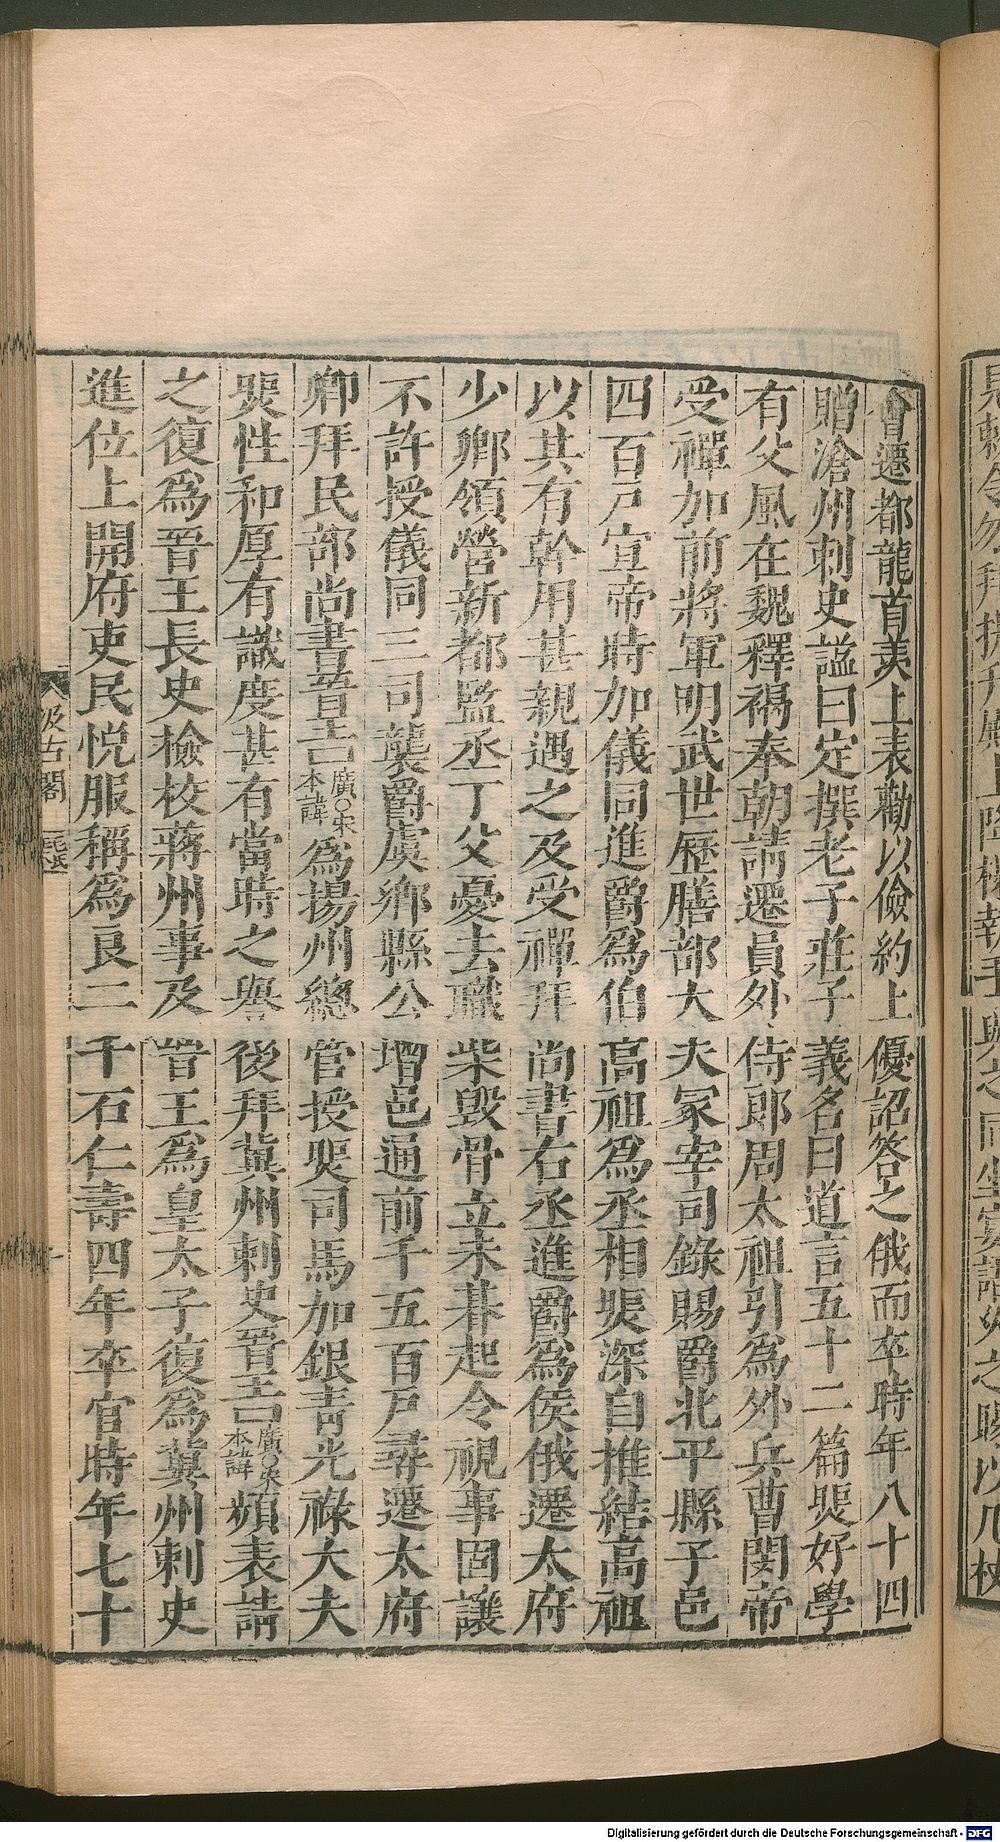 見敕令勿拜扶升殿上降榻執手與之同坐宴語久之賜以几杖
會遷都龍首羨上表勸以儉約上優詔答之俄而卒時年八十四
贈滄州刺史諡曰定撰老子莊子義名曰道言五十二篇煚好學
有父風在魏釋褐奉朝請遷員外侍郎周太祖引為外兵曹閔帝
受禪加前將軍明武世歷膳部大夫冢宰司錄賜爵北平縣子邑
四百戶宣帝時加儀同進爵為伯高祖為丞相煚深自推結高祖
以其有幹用甚親遇之及受禪拜尚書右丞進爵為侯俄遷太府
少卿領營新都監丞丁父憂去職柴毀骨立未朞起令視事固讓
不許授儀同三司襲爵虞鄉縣公增邑通前千五百戶尋遷太府
卿拜民部尚書晉王廣○宋本諱為揚州總管授煚司馬加銀青光祿大夫
煚性和厚有識度甚有當時之譽後拜冀州刺史晉王廣○宋本諱頻表請
之復為晉王長史檢校蔣州事及晉王為皇太子復為冀州刺史
進位上開府吏民悅服稱為良二千石仁壽四年卒官時年七十
汲古閣
毛氏
Digitalisierung gefördert durch die Deutsche Forschungsgemeinschaft - DFG